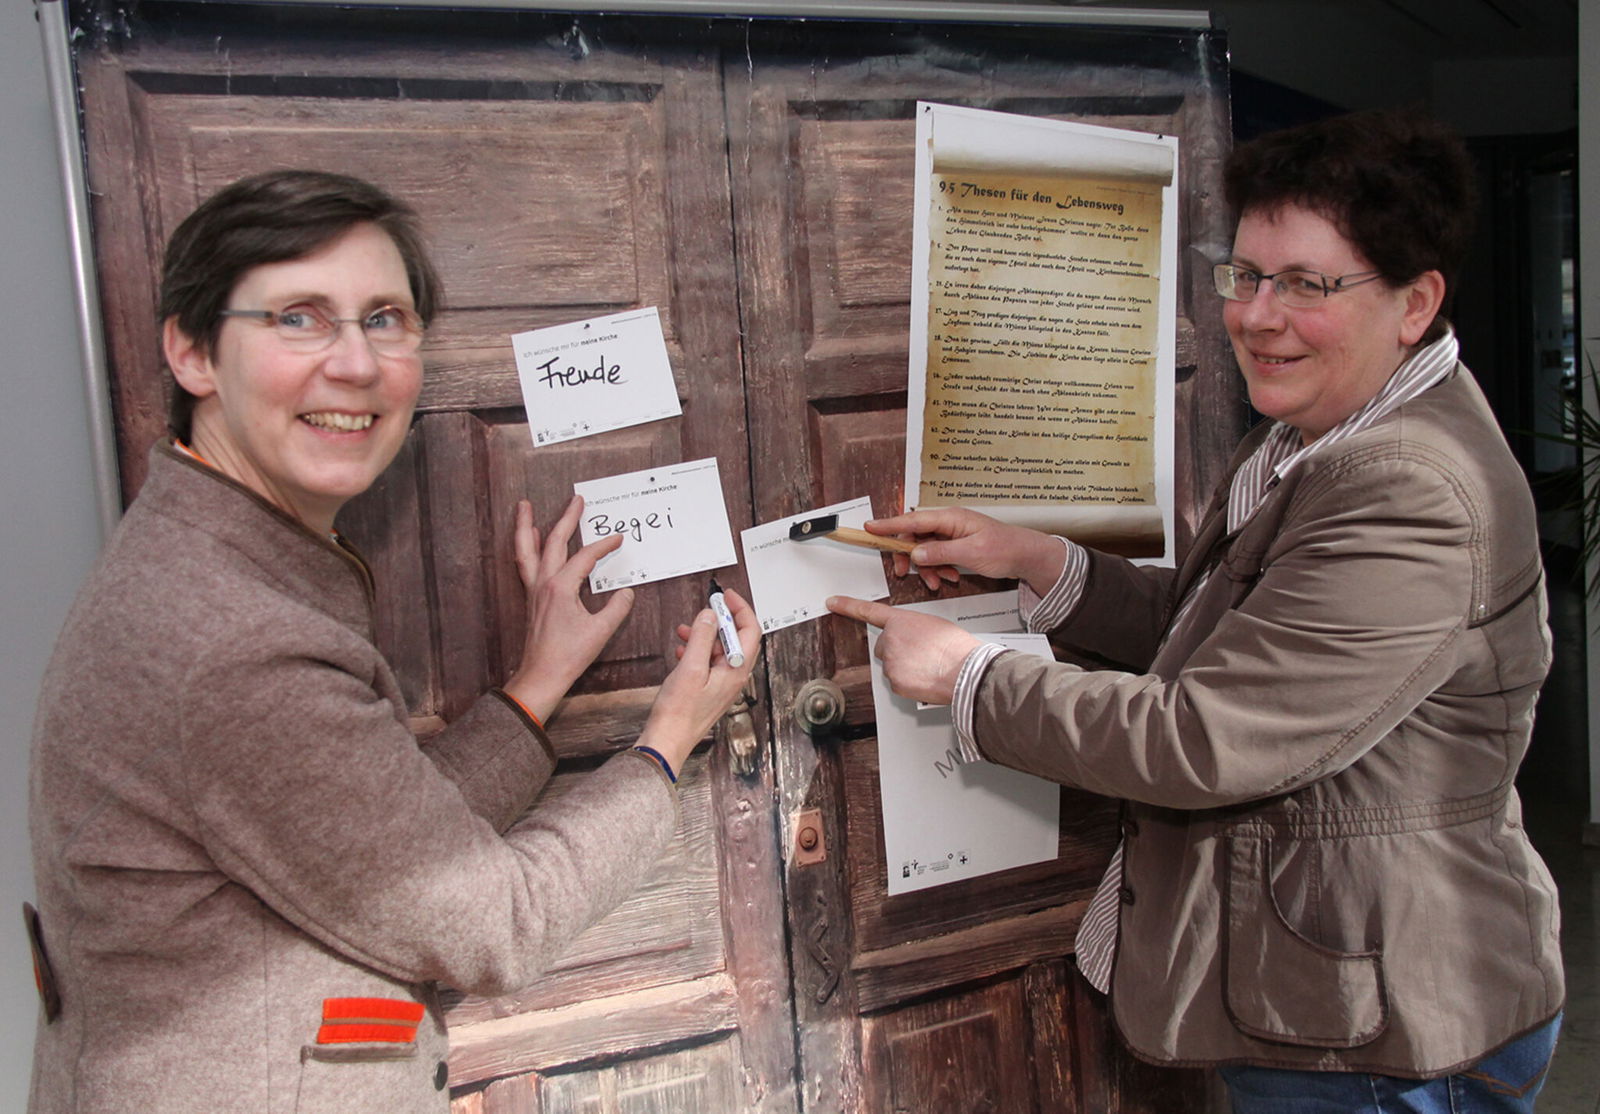 Ich wünsche mir für meine Kirche
Freude
Ich wünsche mir für meine Kirche
Begei
Ich wünsche
95 Thesen für den Lebensweg
1. Als unser Herr und Meister Jesus Christus sagte: "Tut Buße, denn
das Himmelreich ist nahe herbeigekommen" wollte er, dass das ganze
Leben der Glaubenden Buße sei.
5. Der Papst will und kann nicht irgendwelche Strafen erlassen, außer denen,
die er nach dem eigenen Urteil oder nach dem Urteil von Kirchenrechtssätzen
auferlegt hat.
21. Es irren daher diejenigen Ablassprediger, die da sagen, dass ein Mensch
durch Ablässe des Papstes von jeder Strafe gelöst und errettet wird.
27. Lug und Trug predigen diejenigen, die sagen, die Seele erhebe sich aus dem
Fegfeuer, sobald die Münze klingelnd in den Kasten fällt.
28. Das ist gewiss: Fällt die Münze klingelnd in den Kasten, können Gewinn
und Habgier zunehmen. Die Fürbitte der Kirche aber liegt allein in Gottes
Ermessen.
36. Jeder wahrhaft reumütige Christ erlangt vollkommenen Erlass von
Strafe und Schuld; der ihm auch ohne Ablassbriefe zukommt.
43. Man muss die Christen lehren: Wer einem Armen gibt oder einem
Bedürftigen leiht, handelt besser, als wenn er Ablässe kaufte.
62. Der wahre Schatz der Kirche ist das heilige Evangelium der Herrlichkeit
und Gnade Gottes.
90. Diese scharfen, heiklen Argumente der Laien allein mit Gewalt zu
unterdrücken ... die Christen unglücklich zu machen.
95. Und so dürfen sie darauf vertrauen, eher durch viele Trübsale hindurch
in den Himmel einzugehen als durch die falsche Sicherheit eines Friedens.
#Reformationssommer
M